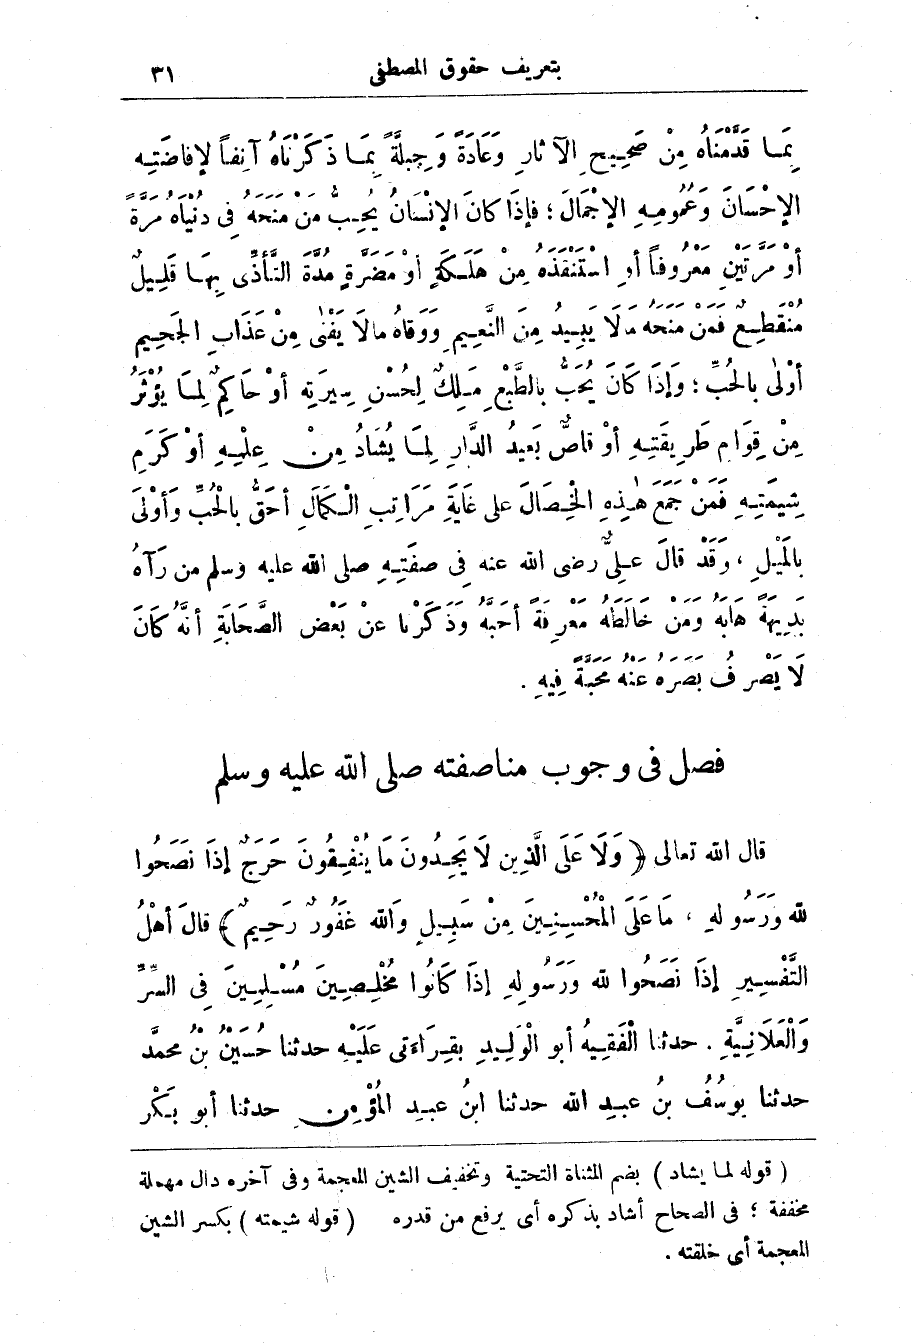 بتعريف حقوق المصطفى ٣١
بِمَا قَدَّمْنَاهُ مِنْ صَحِيحِ الآثَارِ وَعَادَةً وَجِبِلَّةً بِمَا ذَكَرْنَاهُ آنِفاً لإفَاضَتِهِ
الإحْسَانَ وَعُمُومِهِ الإجْمَالَ ؛ فإذَا كانَ الإنْسَانُ يُحِبُّ مَنْ مَنَحَهُ فى دُنْيَاهُ مَرَّةً
أوْ مَرَّتَيْنِ مَعْرُوفاً أوِ اسْتَنْقَذَهُ مِنْ هَلَكَةٍ أوْ مَضَرَّةٍ مُدَّةَ التَّأذِّى بِهَا قَلِيلٌ
مُنْقَطِعٌ فَمَنْ مَنَحَهُ مَالَا يَبِيدُ مِنَ النَّعِيمِ وَوَقاهُ مالَا يَفْنٰى مِنْ عَذَابِ الجَحِيمِ
أوْلٰى بالحُبِّ ؛ وَإذَا كَانَ يُحَبُّ بالطَّبْعِ مَلِكٌ لِحُسْنِ سِيرَتِهِ أوْ حَاكِمٌ لِمَا يُؤْثَرُ
مِنْ قِوَامِ طَرِيقَتِهِ أوْ قاصٌّ بَعِيدُ الدَّارِ لِمَا يُشَادُ مِنْ عِلْمِهِ أوْ كَرَمِ
شِيمَتِهِ فَمَنْ جَمَعَ هٰذِهِ الخِصَالَ على غَايَةِ مَرَاتِبِ الْكَمَالِ أحَقُّ بالْحُبِّ وَأوْلَى
بالمَيْلِ ، وَقَدْ قالَ عَلِىٌّ رضى الله عنه فى صفَتِهِ صلى الله عليه وسلم من رَآهُ
بَدِيهَةً هَابَهُ وَمَنْ خَالَطَهُ مَعْرِفَةً أحَبَّهُ وَذَكَرْنا عنْ بَعْضِ الصَّحَابَةِ أنَّهُ كَانَ
لَا يَصْرِفُ بَصَرَهُ عَنْهُ مَحَبَّةً فِيهِ .
فصل فى وجوب مناصفته صلى الله عليه وسلم
قال الله تعالى ﴿ وَلَا عَلَى الَّذِينَ لَا يَجِدُونَ مَا يُنْفِقُونَ حَرَجٌ إذَا نَصَحُوا
لله وَرَسُولِهِ ، مَا عَلَى الْمُحْسِنِينَ مِنْ سَبِيلٍ وَالله غَفُورٌ رَحِيمٌ ﴾ قالَ أهْلُ
التَّفْسِيرِ إذَا نَصَحُوا لله وَرَسُولِهِ إذَا كَانُوا مُخْلِصِينَ مُسْلِمِينَ فى السِّرِّ
وَالْعَلَانِيَّةِ . حدثنا الْفَقِيهُ أبو الْوَلِيدِ بقِرَاءتى عَلَيْهِ حدثنا حُسَيْنُ بْنُ محمَّد
حدثنا يوسُفُ بنُ عبدِ الله حدثنا ابنُ عبدِ المُؤْمِنِ حدثنا أبو بَكْرِ
( قوله لما يشاد ) بضم المثناة التحتية وتخفيف الشين المعجمة وفى آخره دال مهملة
مخففة ؛ فى الصحاح أشاد بذكره أى يرفع من قدره ( قوله شيمته ) بكسر الشين
المعجمة أى خلقته .